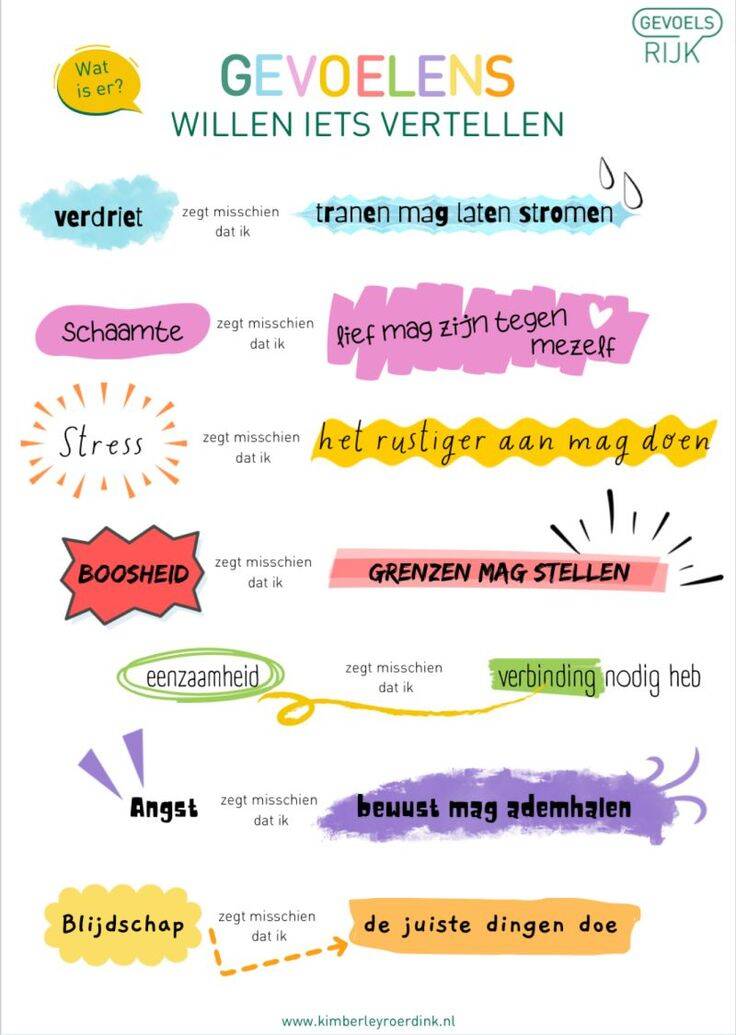 GEVOELS
RIJK
Wat
is er?
GEVOELENS
WILLEN IETS VERTELLEN
verdriet
zegt misschien
dat ik
tranen mag laten stromen
Schaamte
zegt misschien
dat ik
lief mag zijn tegen
mezelf
Stress
zegt misschien
dat ik
het rustiger aan mag doen
BOOSHEID
zegt misschien
dat ik
GRENZEN MAG STELLEN
eenzaamheid
zegt misschien
dat ik
verbinding nodig heb
Angst
zegt misschien
dat ik
bewust mag ademhalen
Blijdschap
zegt misschien
dat ik
de juiste dingen doe
www.kimberleyroerdink.nl